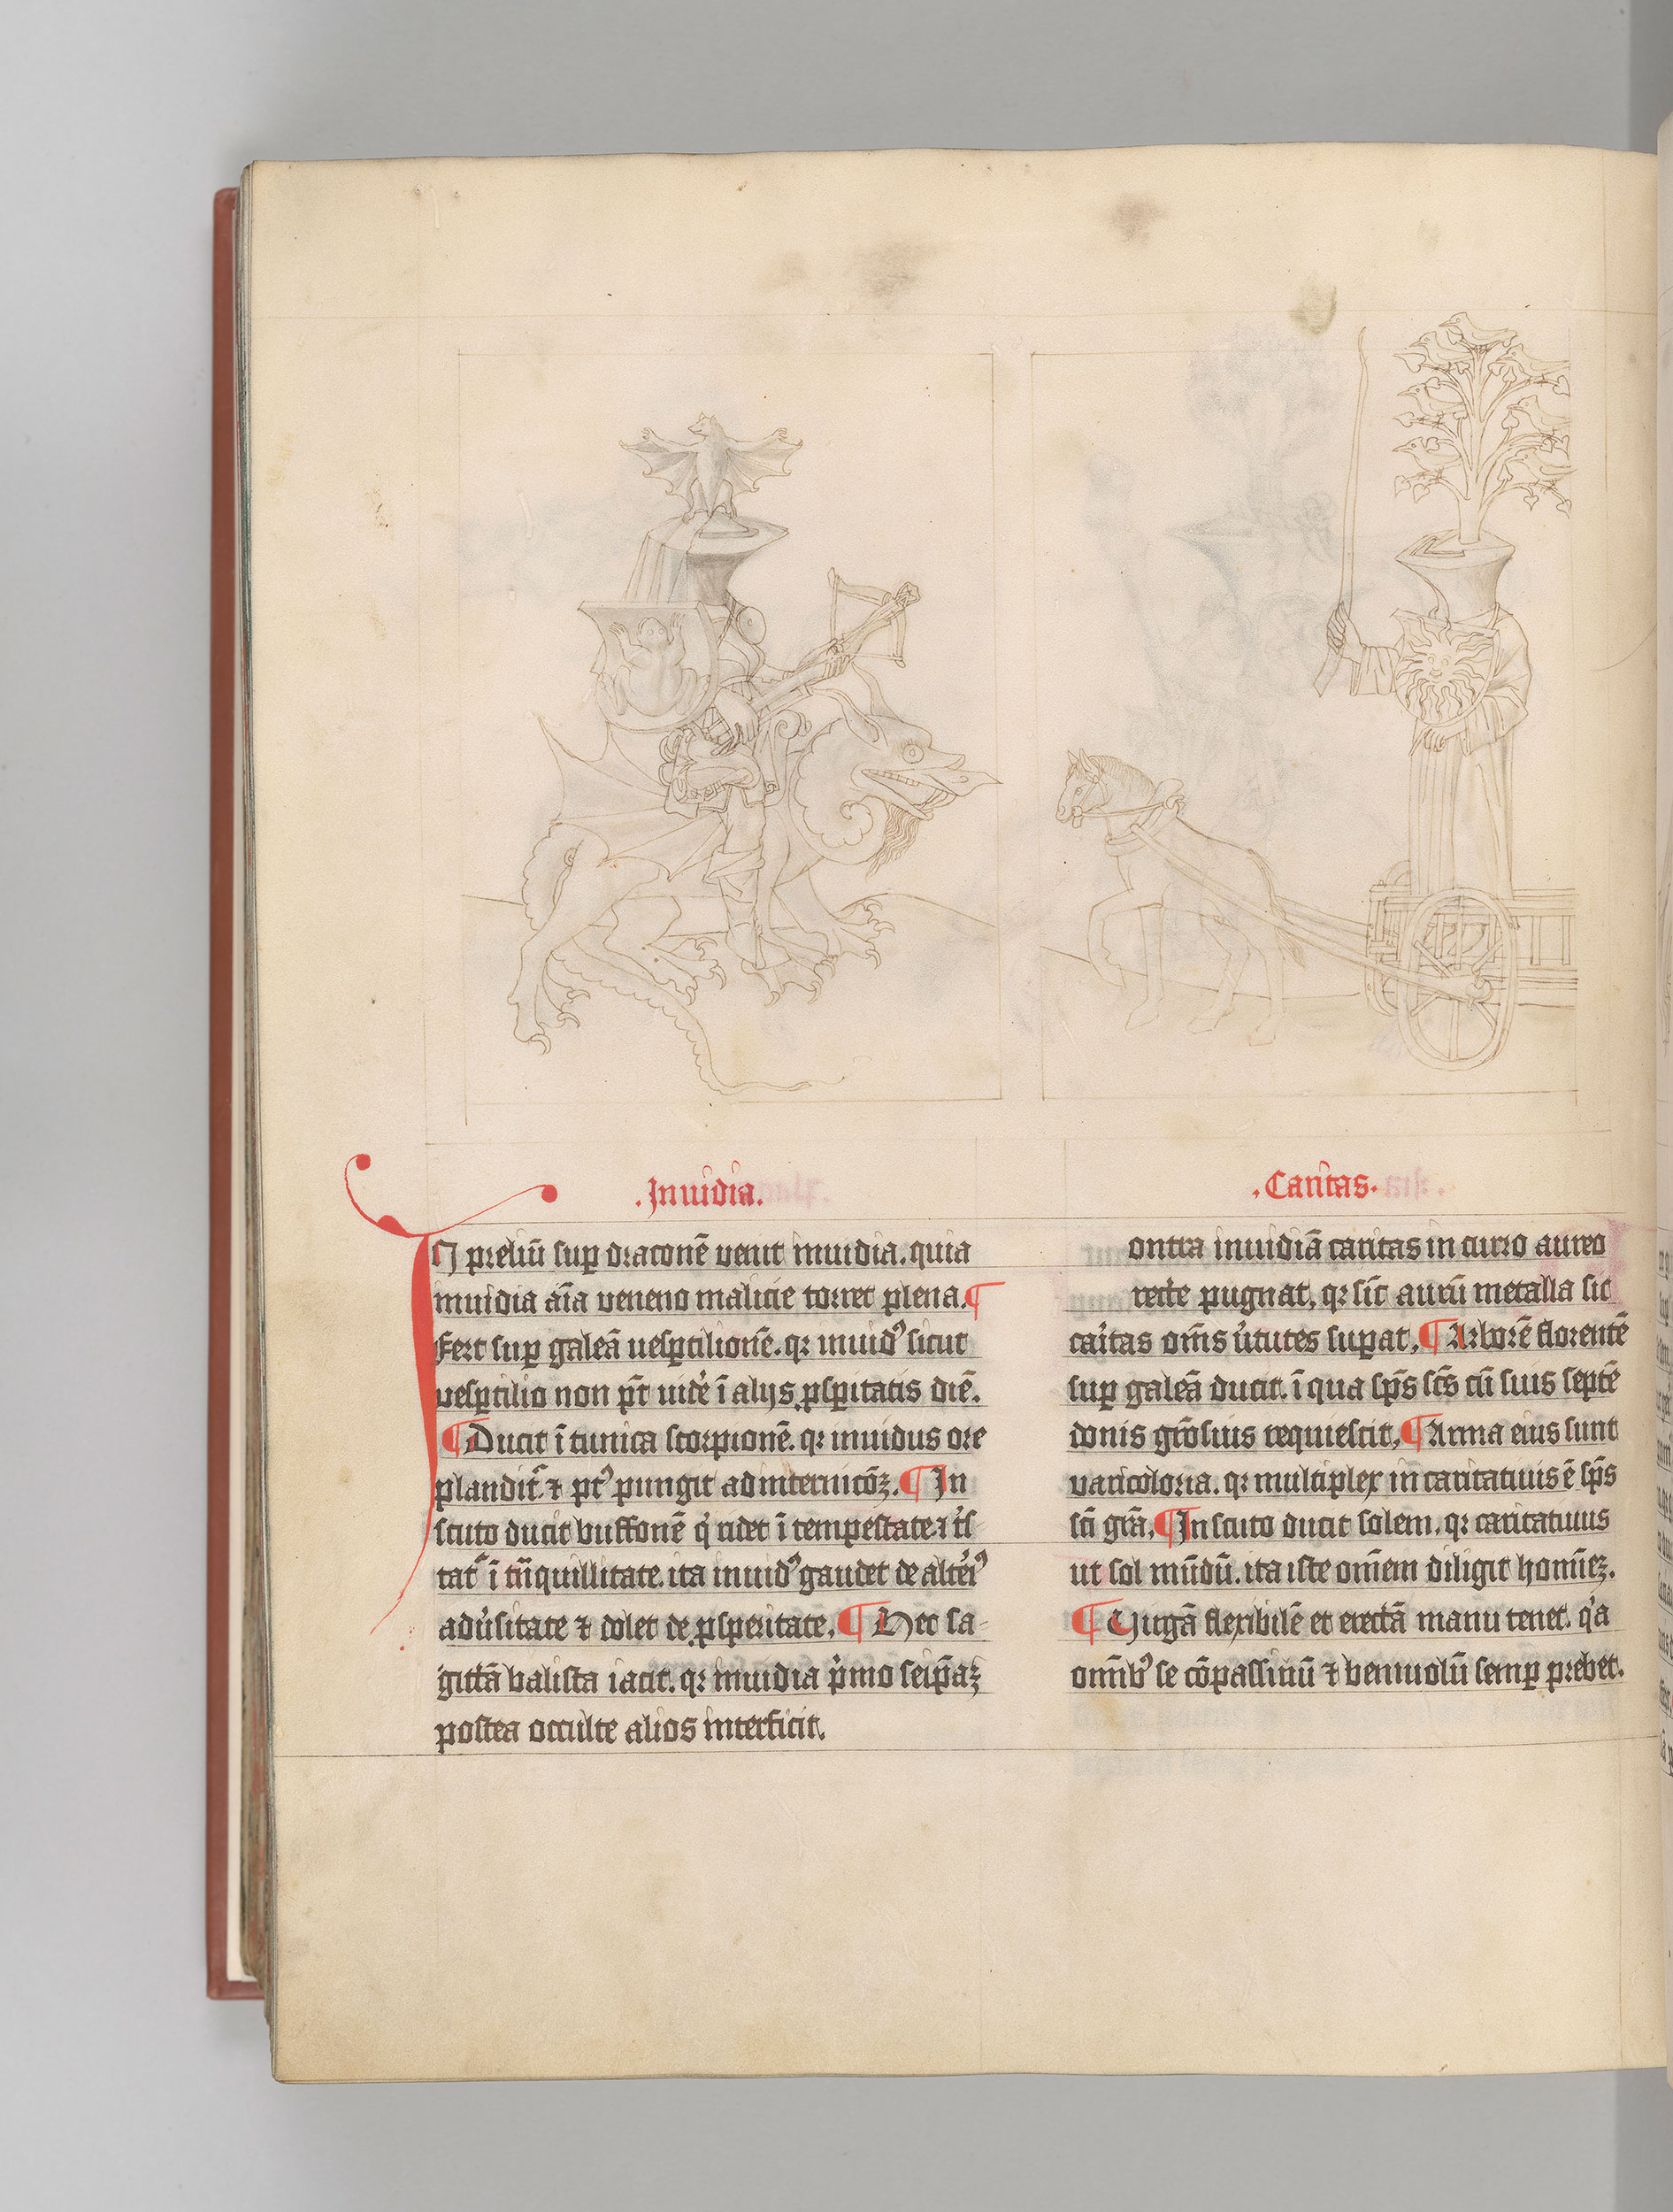 .Inuidia.
IN preliū sup draconē venit inuidia. quia
inuidia aīa veneno malicie torret plena. ¶
Fert sup galeā uesptilionē. qr inuidꝰ sicut
vesptilio non pt̄ uidē ī alijs ꝓspitatis diē.
¶ Ducit ī tunica scorpionē. qr inuidus ore
plandit ⁊ ptꝰ pungit ad ¶ In
scuto ducit buffonē q ridet ī tempestate ⁊ tͥs
tat ī tͣnquillitate. ita inuidꝰ gaudet de altͥeiꝰ
adu̓sitate ⁊ dolet de ꝓsperitate. ¶ Hec sa-
gittā balista iacit. qr inuidia pͥmo seip̄aꝫ
postea occulte alios interficit.
.Caritas.
ontra inuidiā caritas in curro aureo
recte pugnat, qr sic̄ aurū metalla sic
caͥtas om̄s uͥtutes supat. ¶ Arborē florentē
sup galeā ducit. ī qua sp̄s sc̄s cū suis septē
donis gͣosius requiescit. ¶ Arma eius sunt
varicoloria. qr multiplex in caritatiuis ē sp̄s
sc̄i gr̄a. ¶ In scuto ducit solem. qr caritatiuus
ut sol mūdū. ita iste om̄em diligit homīeꝫ.
¶ Uirgā flexibilē et erectā manu tenet. qͥa
om̄ibꝰ se cōpassiuū ⁊ beniuolū semp prebet.